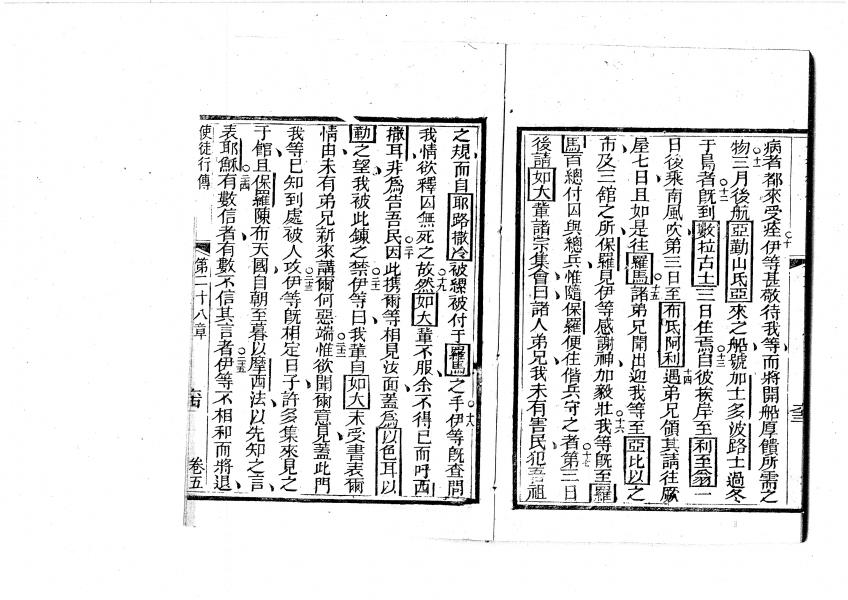 病者都來受痊伊等甚敬待我等而將開船厚饋所需之
物三月後航亞勒山氐亞來之船號加士多波路士過冬
于島者旣到數拉古士三日住焉自彼挨岸至利至翁一
日後乘南風吹第三日至布氐阿利遇弟兄領其請往厥
屋七日且如是往羅馬諸弟兄聞出迎我等至亞比以之
市及三舘之所保羅見伊等感謝神加毅壯我等旣至羅
馬百總付囚與總兵惟隨保羅便住偕兵守之者第三日
後請如大輩諸宗集會曰諸人弟兄我未有害民犯吾祖
之規而自耶路撒冷被縲被付于羅馬之手伊等旣查問
我情欲釋因無死之故然如大輩不服余不得已而吁西
撒耳非為告吾民因此携爾等相見汝面蓋為以色耳以
勒之望我被此鍊之禁伊等曰我輩自如大未受書表爾
情由未有弟兄新來講爾何惡端惟欲聞爾意見蓋此門
我等已知到處被人攻伊等旣相定日子許多集來見之
于館且保羅陳布天國自朝至暮以摩西法以先知之言
表耶穌有數信者有數不信其言者伊等不相和而將退
使徒行傳
第二十八章
卷五